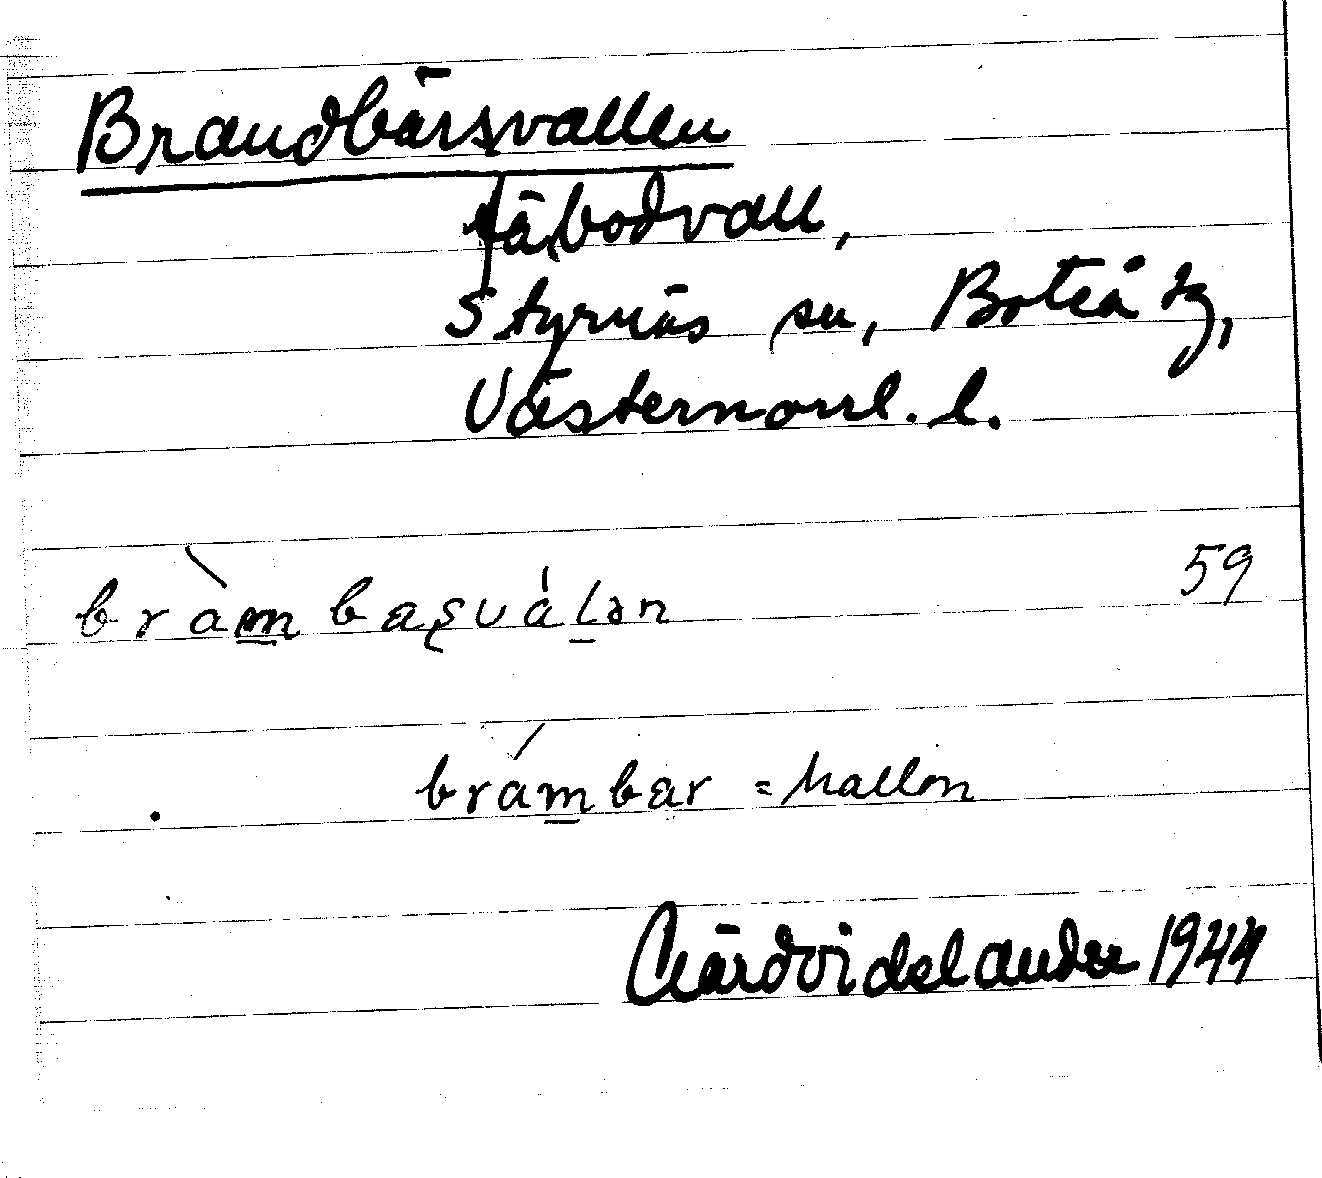 Brandbärsvallen
fäbodvall,
Styrnäs sn, Boteå tg,
Västernorrl. l.
bràmbaşvàlən 59
brámbar = hallon
1944